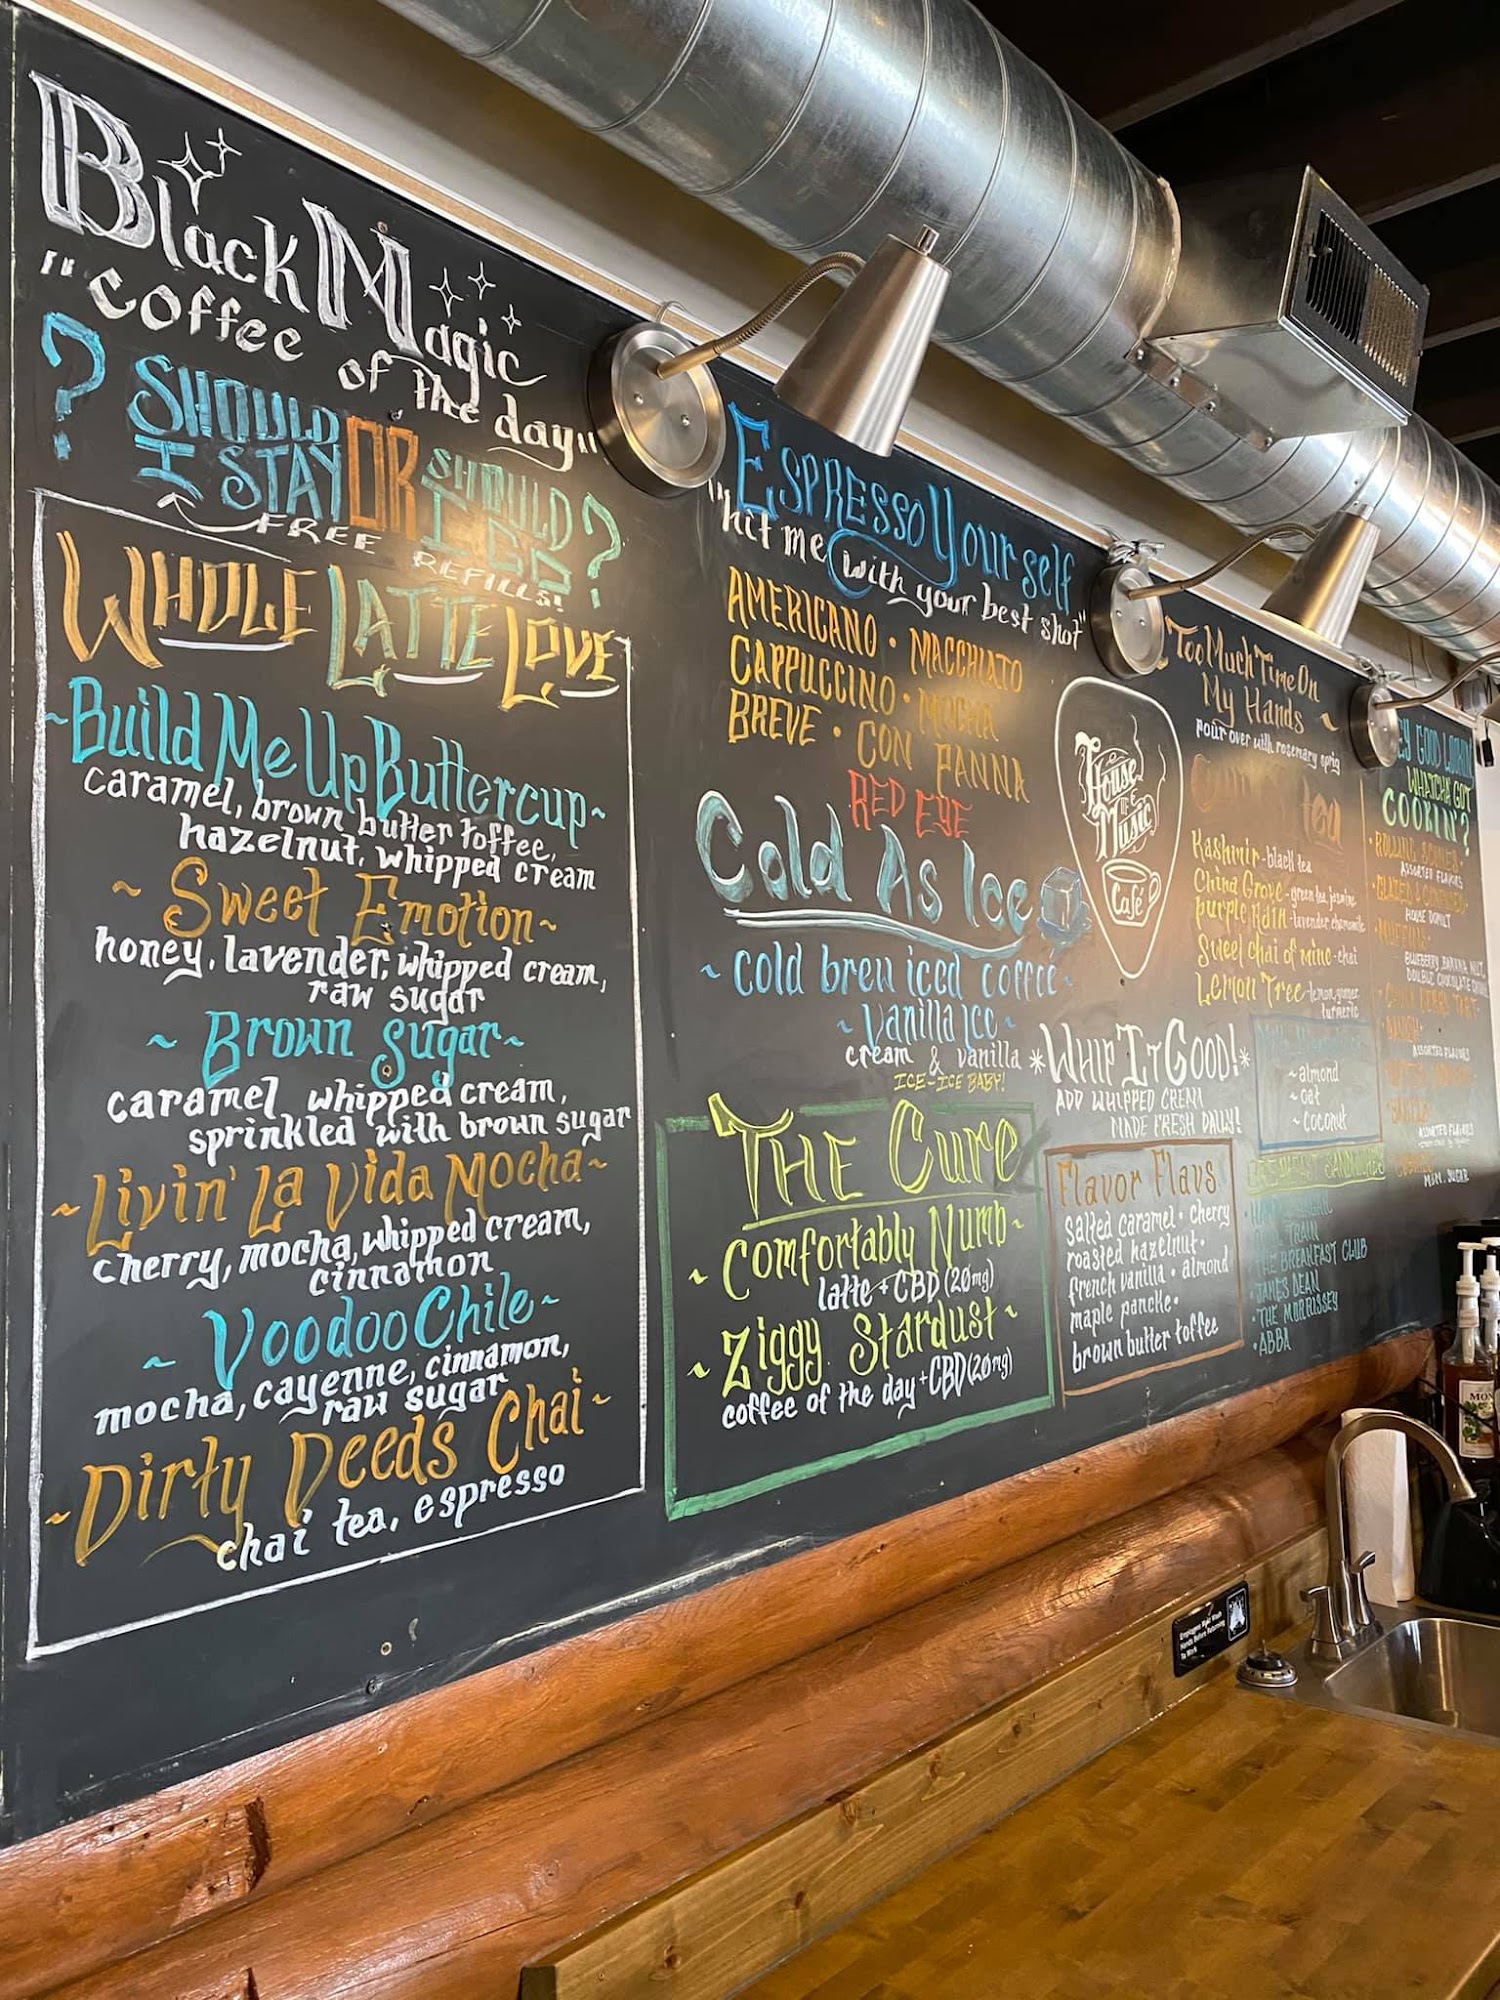 Black Magic
"coffee of the day"
? SHOULD I STAY OR SHOULD I GO ?
FREE REFILLS!
WHOLE LATTE LOVE
~Build Me Up Buttercup~
caramel, brown butter toffee,
hazelnut, whipped cream
~ Sweet Emotion~
honey, lavender, whipped cream,
raw sugar
~ Brown Sugar~
caramel whipped cream,
sprinkled with brown sugar
~Livin' La Vida Mocha~
cherry, mocha, whipped cream,
cinnamon
~ Voodoo Chile~
mocha, cayenne, cinnamon,
raw sugar
~Dirty Deeds Chai~
chai tea, espresso
Espresso Yourself
"hit me with your best shot"
AMERICANO • MACCHIATO
CAPPUCCINO • MOCHA
BREVE • CON PANNA
RED EYE
Cold As Ice
~ cold brew iced coffee~
~Vanilla Ice~
cream & vanilla
ICE-ICE BABY!
THE Cure
~ Comfortably Numb~
latte + CBD (20mg)
~ Ziggy Stardust ~
coffee of the day + CBD (20mg)
House
OF
Music
Café
*WHIP IT GOOD!*
ADD WHIPPED CREAM
MADE FRESH DAILY!
Flavor Flavs
salted caramel • cherry
roasted hazelnut •
french vanilla • almond
maple pancke •
brown butter toffee
Too Much Time On
My Hands ~
pour over with rosemary sprig
tea
Kashmir - black tea
China Grove - green tea, jasmine
Purple Rain - lavender chamomile
Sweet chai of mine - chai
Lemon Tree - lemon, ginger
turmeric
~ almond
~ oat
~ coconut
BREAKFAST SANDWICHES
TRAIN
THE BREAKFAST CLUB
• JAMES DEAN
• THE MORRISSEY
• ABBA
HEY GOOD LOOKIN
WHATCHA GOT
COOKIN'?
• ROLLING SCONES
ASSORTED FLAVORS
• GLAZED & CONFUSED
HOUSE DONUT
• MUFFINS
BLUEBERRY, BANANA NUT,
DOUBLE CHOCOLATE
ASSORTED FLAVORS
ASSORTED FLAVORS
SUGAR
Employees Must Wash
Hands Before Returning
To Work
MON